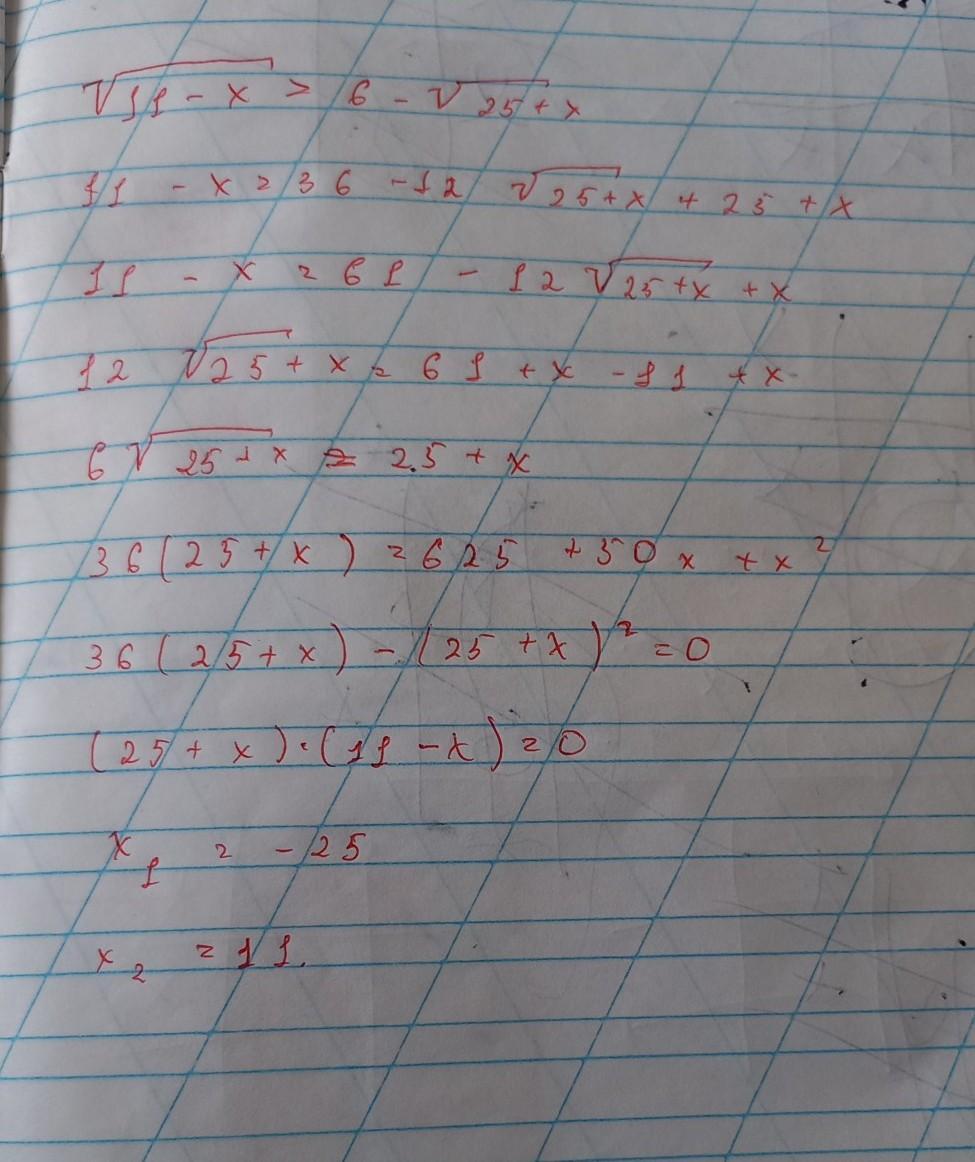 √11 - x > 6 - √25 + x
11 - x = 36 - 12 √25 + x + 25 + x
11 - x = 61 - 12 √25 + x + x
12 √25 + x = 61 + x - 11 + x
6 √25 + x = 25 + x
36(25 + x) = 625 + 50x + x²
36(25 + x) - (25 + x)² = 0
(25 + x) · (11 - x) = 0
x₁ = -25
x₂ = 11.